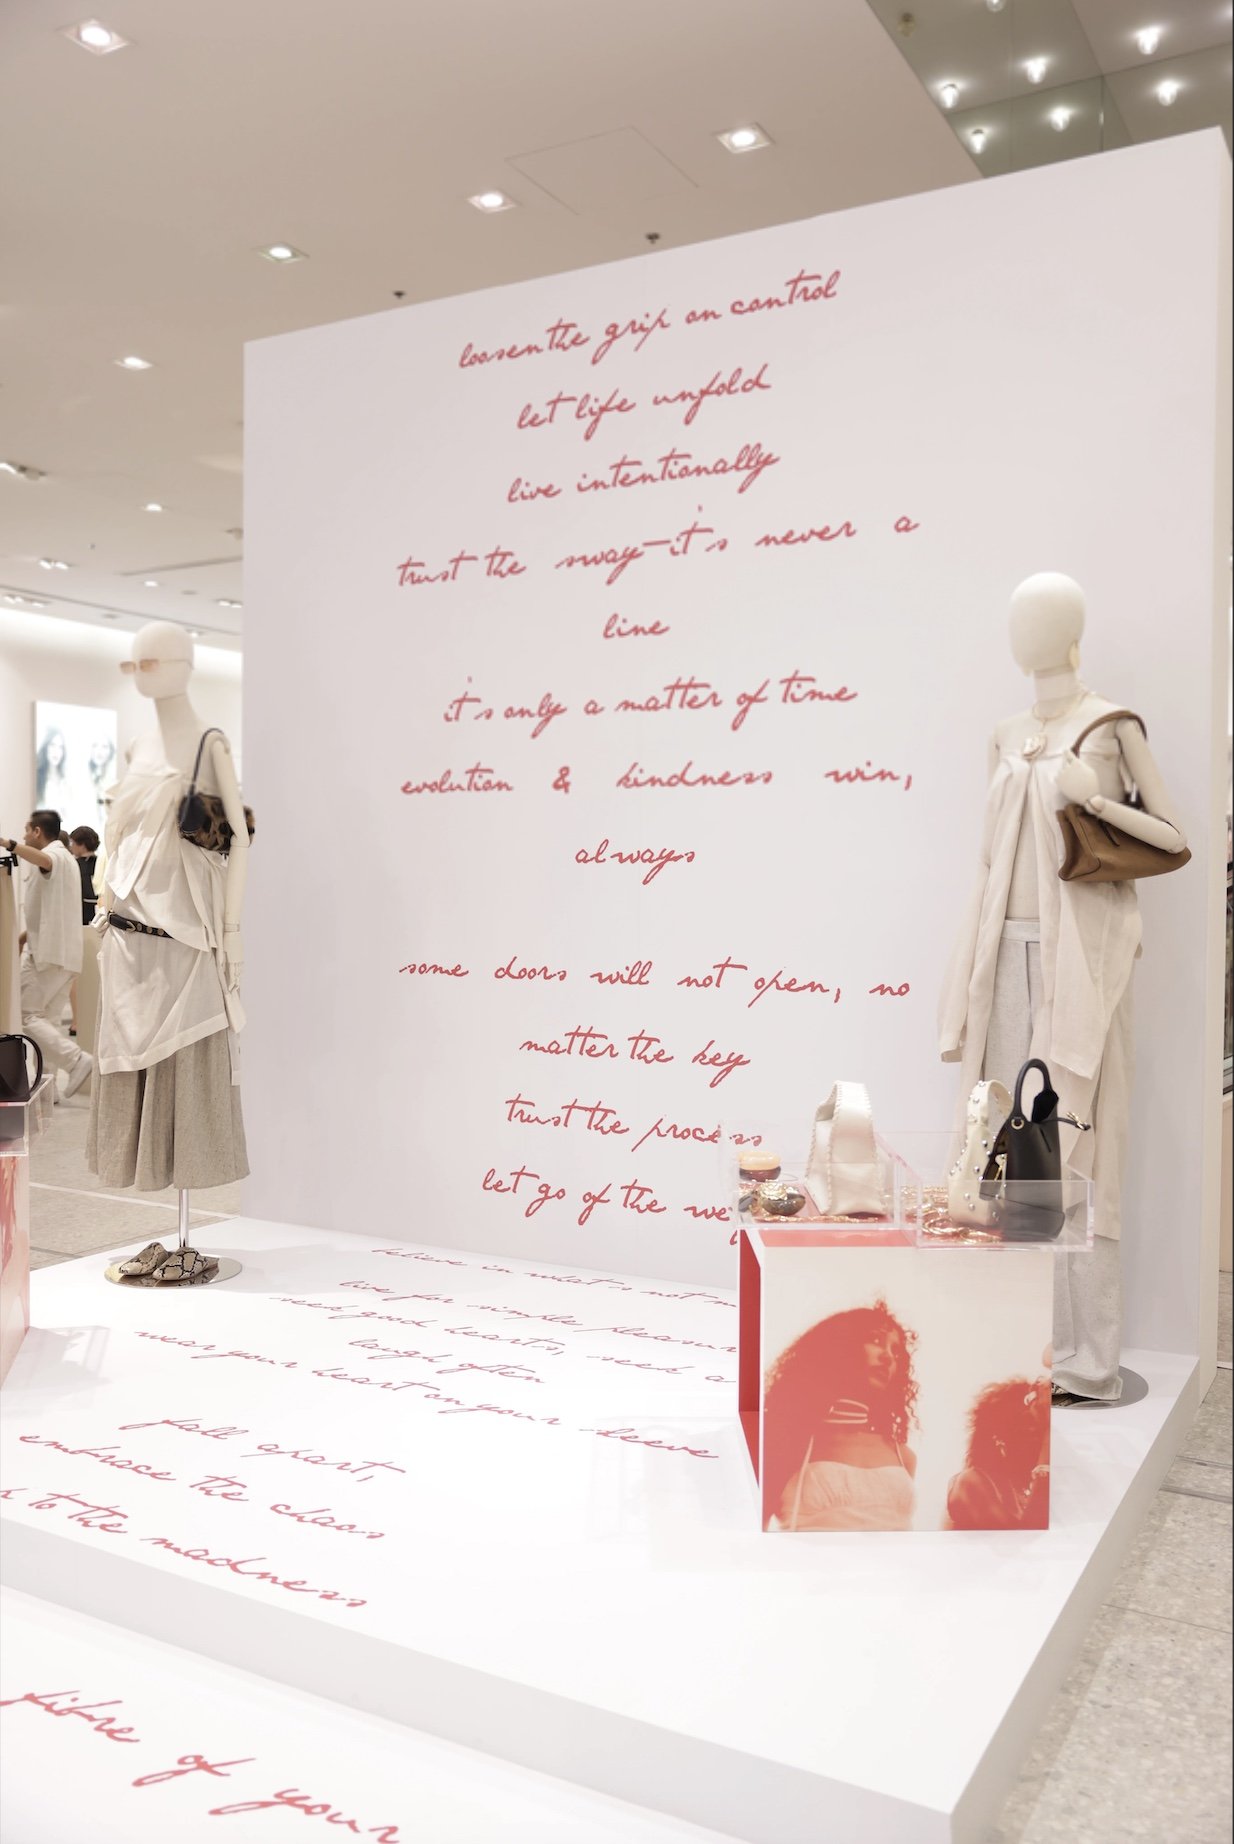 loosen the grip on control
let life unfold
live intentionally
trust the sway—it's never a
line
it's only a matter of time
evolution & kindness win,
always
some doors will not open, no
matter the key
trust the process
let go of the
believe in what's not
live for simple
seek good hearts, seek a
laugh often
wear your heart on your sleeve
fall apart,
embrace the chaos
to the madness
fibre of your